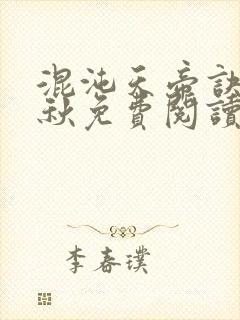 混沌天帝訣
秋免費閱讀
李春璞